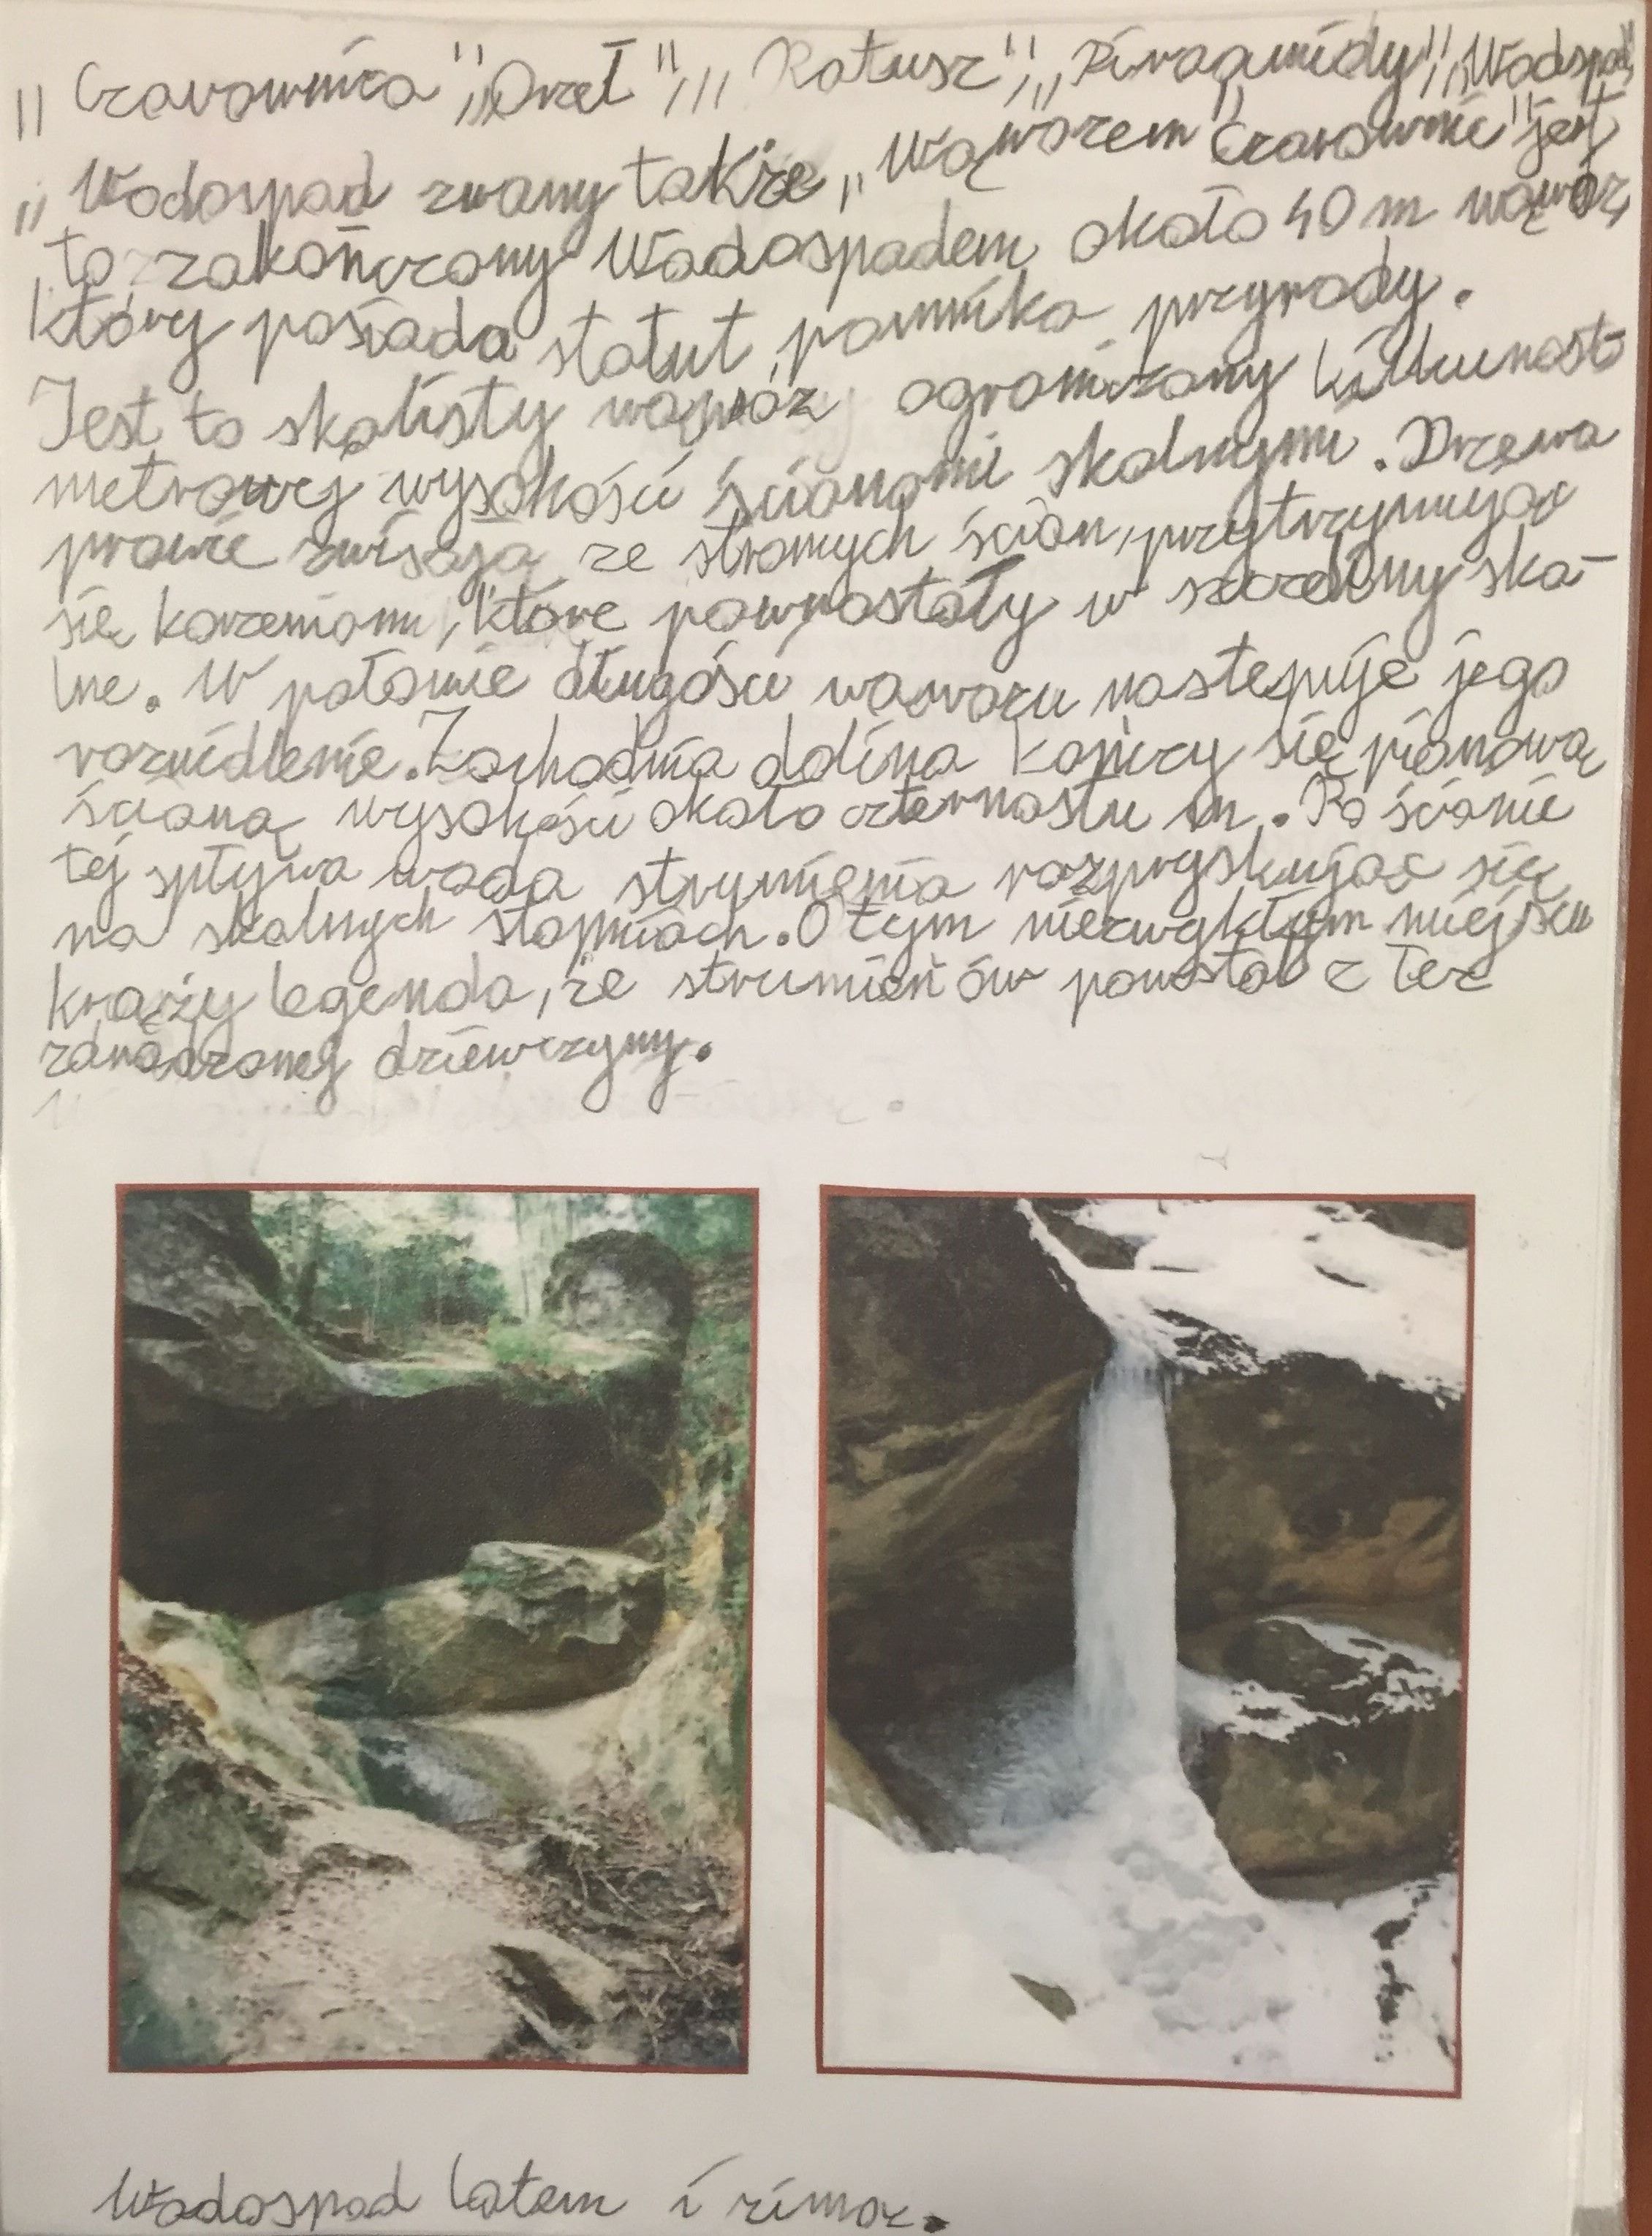 „Czarownica", „Orzeł", „Ratusz", „Piragmidy", „Wodospad"
„Wodospad zwany także „Wąwozem Czarownic" jest
to zakończony Wodospadem około 40 m wąwóz,
który posiada statut pomnika przyrody.
Jest to skalisty wąwóz ograniczony kilkunasto
metrowej wysokości ścianami skalnymi. Drzewa
prawie zwisają ze stromych ścian, przytrzymując
się korzeniami, które powrastały w szczeliny ska-
lne. W połowie długości wąwozu nastepuje jego
rozwidlenie. Zachodnia dolina kończy się pionową
ścianą wysokości około czternastu m. Po ścianie
tej spływa woda strumienia rozpryskując się
na skalnych stopniach. O tym niezwykłym miejscu
krąży legenda, że strumień ów powstał z łez
zdradzonej dziewczyny.
Wodospad latem i zimą.